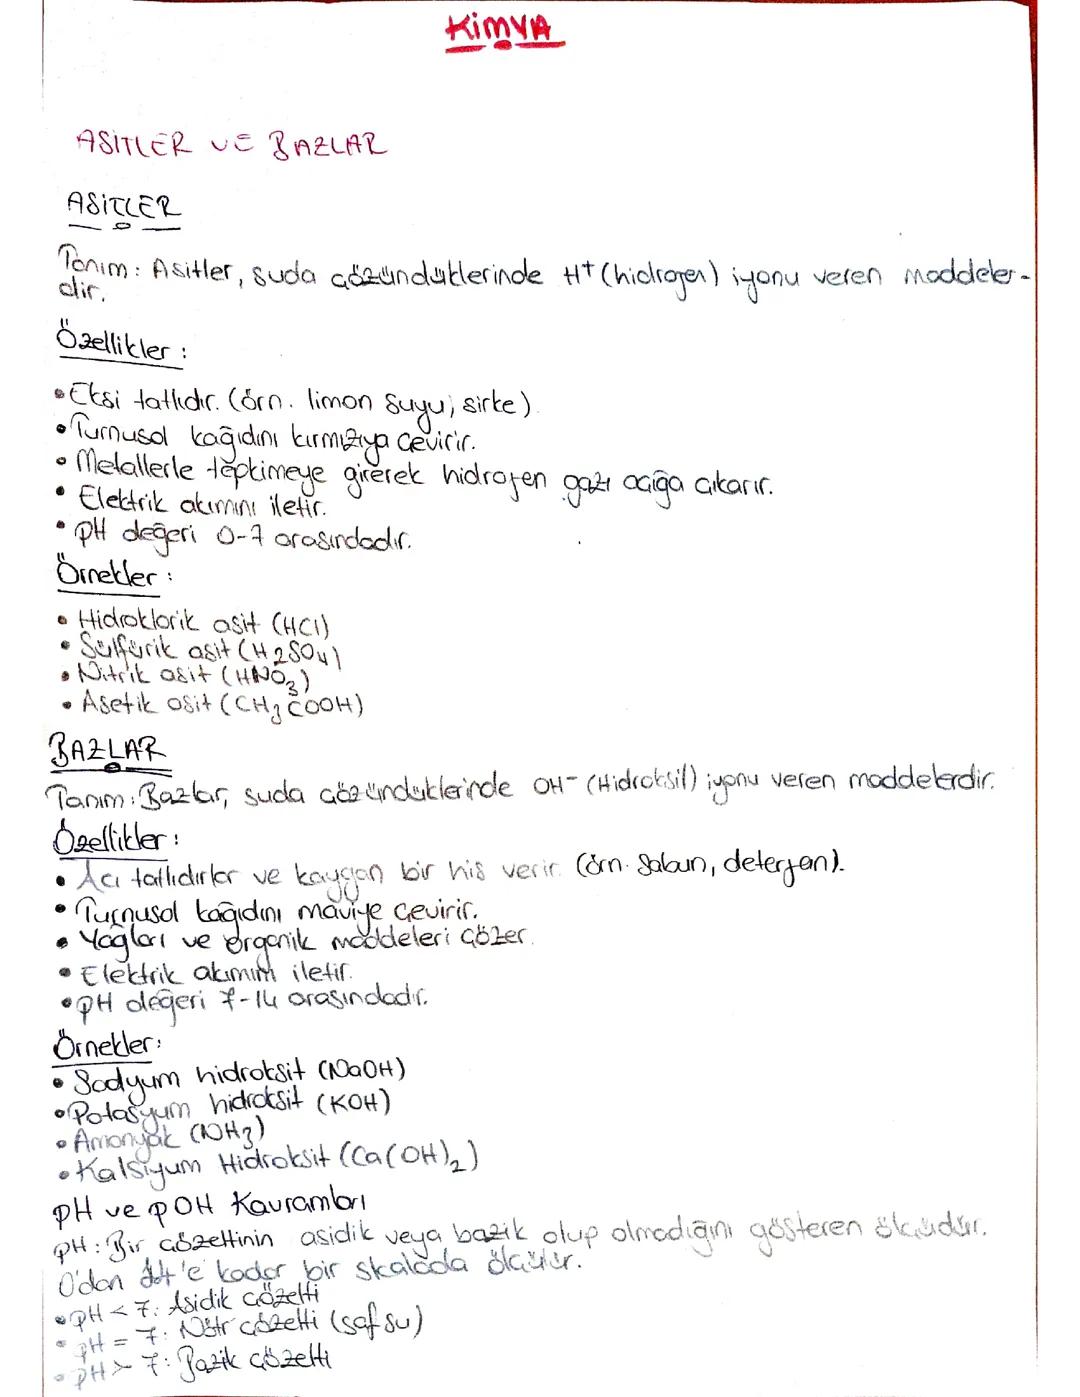 KimYA
ASİTLER VE BAZLAR
ASİTLER
Tanım: Asitler, suda çözündüklerinde H+ (hidrojen) iyonu veren maddeler-
dir.
Özellikler:
• Ekşi tatlıdır. (örn. limon suyu, sirke)
• Turnusol kağıdını kırmızıya çevirir.
• Metallerle tepkimeye girerek hidrojen gazı açığa çıkarır.
• Elektrik akımını iletir.
• pH değeri 0-7 arasındadır.
Örnekler:
• Hidroklorik asit (HCl)
• Sülfürik asit (H2SO4)
• Nitrik asit (HNO3)
• Asetik asit (CH3COOH)
BAZLAR
Tanım: Bazlar, suda çözündüklerinde OH- (Hidroksil) iyonu veren maddelerdir.
Özellikler:
• Acı tatlıdırlar ve kaygan bir his verir. (örn. Sabun, deterjan).
• Turnusol kağıdını maviye çevirir.
• Yağları ve organik maddeleri çözer.
• Elektrik akımını iletir.
• pH değeri 7-14 arasındadır.
Örnekler:
• Sodyum hidroksit (NaOH)
• Potasyum hidroksit (KOH)
• Amonyak (NH3)
• Kalsiyum Hidroksit (Ca(OH)2)
pH ve pOH Kavramları
pH: Bir çözeltinin asidik veya bazik olup olmadığını gösteren ölçüdür.
0'dan 14'e kadar bir skalada ölçülür.
• pH < 7: Asidik çözelti
• pH = 7: Nötr çözelti (saf su)
• pH > 7: Bazik çözelti